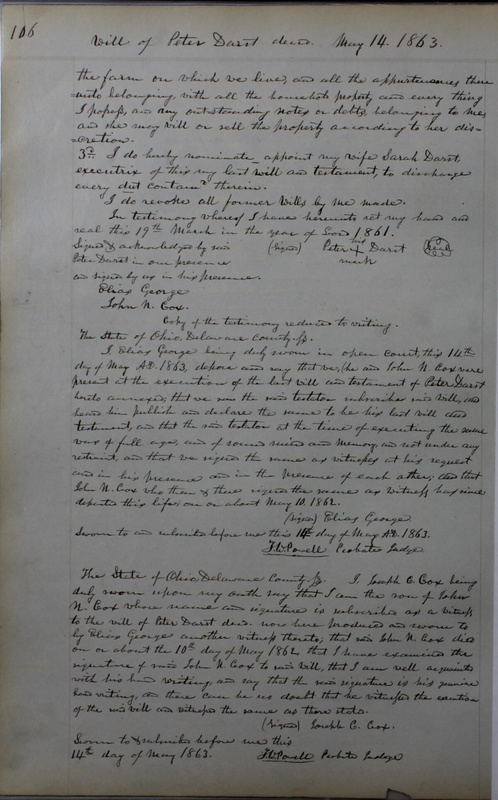 106
Will of Peter Darst decd. May 14. 1863.
the farm on which we live, and all the appurtenances there
unto belonging, with all the household property and every thing
I possess, and any outstanding notes or debts, belonging to me,
and she may will or sell the property according to her dis-
cretion.
3rd I do hereby nominate appoint my wife Sarah Darst,
executrix of this my last will and testament, to discharge
every dut containd therein.
I do revoke all former Wills by me made.
In testimony whereof I have hereunto set my hand and
seal this 19th March in the year of Lord 1861.
Signed & acknowledged by said (Signed) Peter his + mark Darst Seal
Peter Darst in our presence
and signed by us in his presence.
Elias George
John N. Cox.
Copy of the testimony reduced to writing.
The State of Ohio, Delaware County. Ss.
I Elias George being duly sworn in open court, this 14th
day of May A.D. 1863, depose and say that we, he and John N. Cox were
present at the execution of the last will and testament of Peter Darst
hereto annexed; that we saw the said testator subscribe said will, and
heard him publish and declare the same to be his last will and
testament, and that the said testator at the time of executing the same
was of full age, and of sound mind and memory, and not under any
restraint, and that we signed the same as witnesses at his request
and in his presence and in the presence of each other; and that
John N. Cox who then & there signed the same as witness has since
departed this life; on or about May 10. 1862.
(Signed) Elias George
Sworn to and subscribed before me this 14th day of May A.D. 1863.
T.W. Powell Probate Judge
The State of Ohio, Delaware County Ss. I Joseph C. Cox being
duly sworn upon my oath say that I am the son of John
N. Cox whose name and signature is subscribed as a witness
to the will of Peter Darst decd. now here produced and sworn to
by Elias George another witness thereto; that said John N. Cox died
on or about the 10th day of May 1862, that I have examined the
signature of said John N. Cox to said Will, that I am well acquainted
with his hand writing, and say that the said signature is his genuine
hand writing, and there can be no doubt that he witnessed the execution
of the said will and witnessed the same as there stated.
(Signed) Joseph C. Cox.
Sworn to & subscribed before me this
14th day of May 1863. T.W. Powell Probate Judge